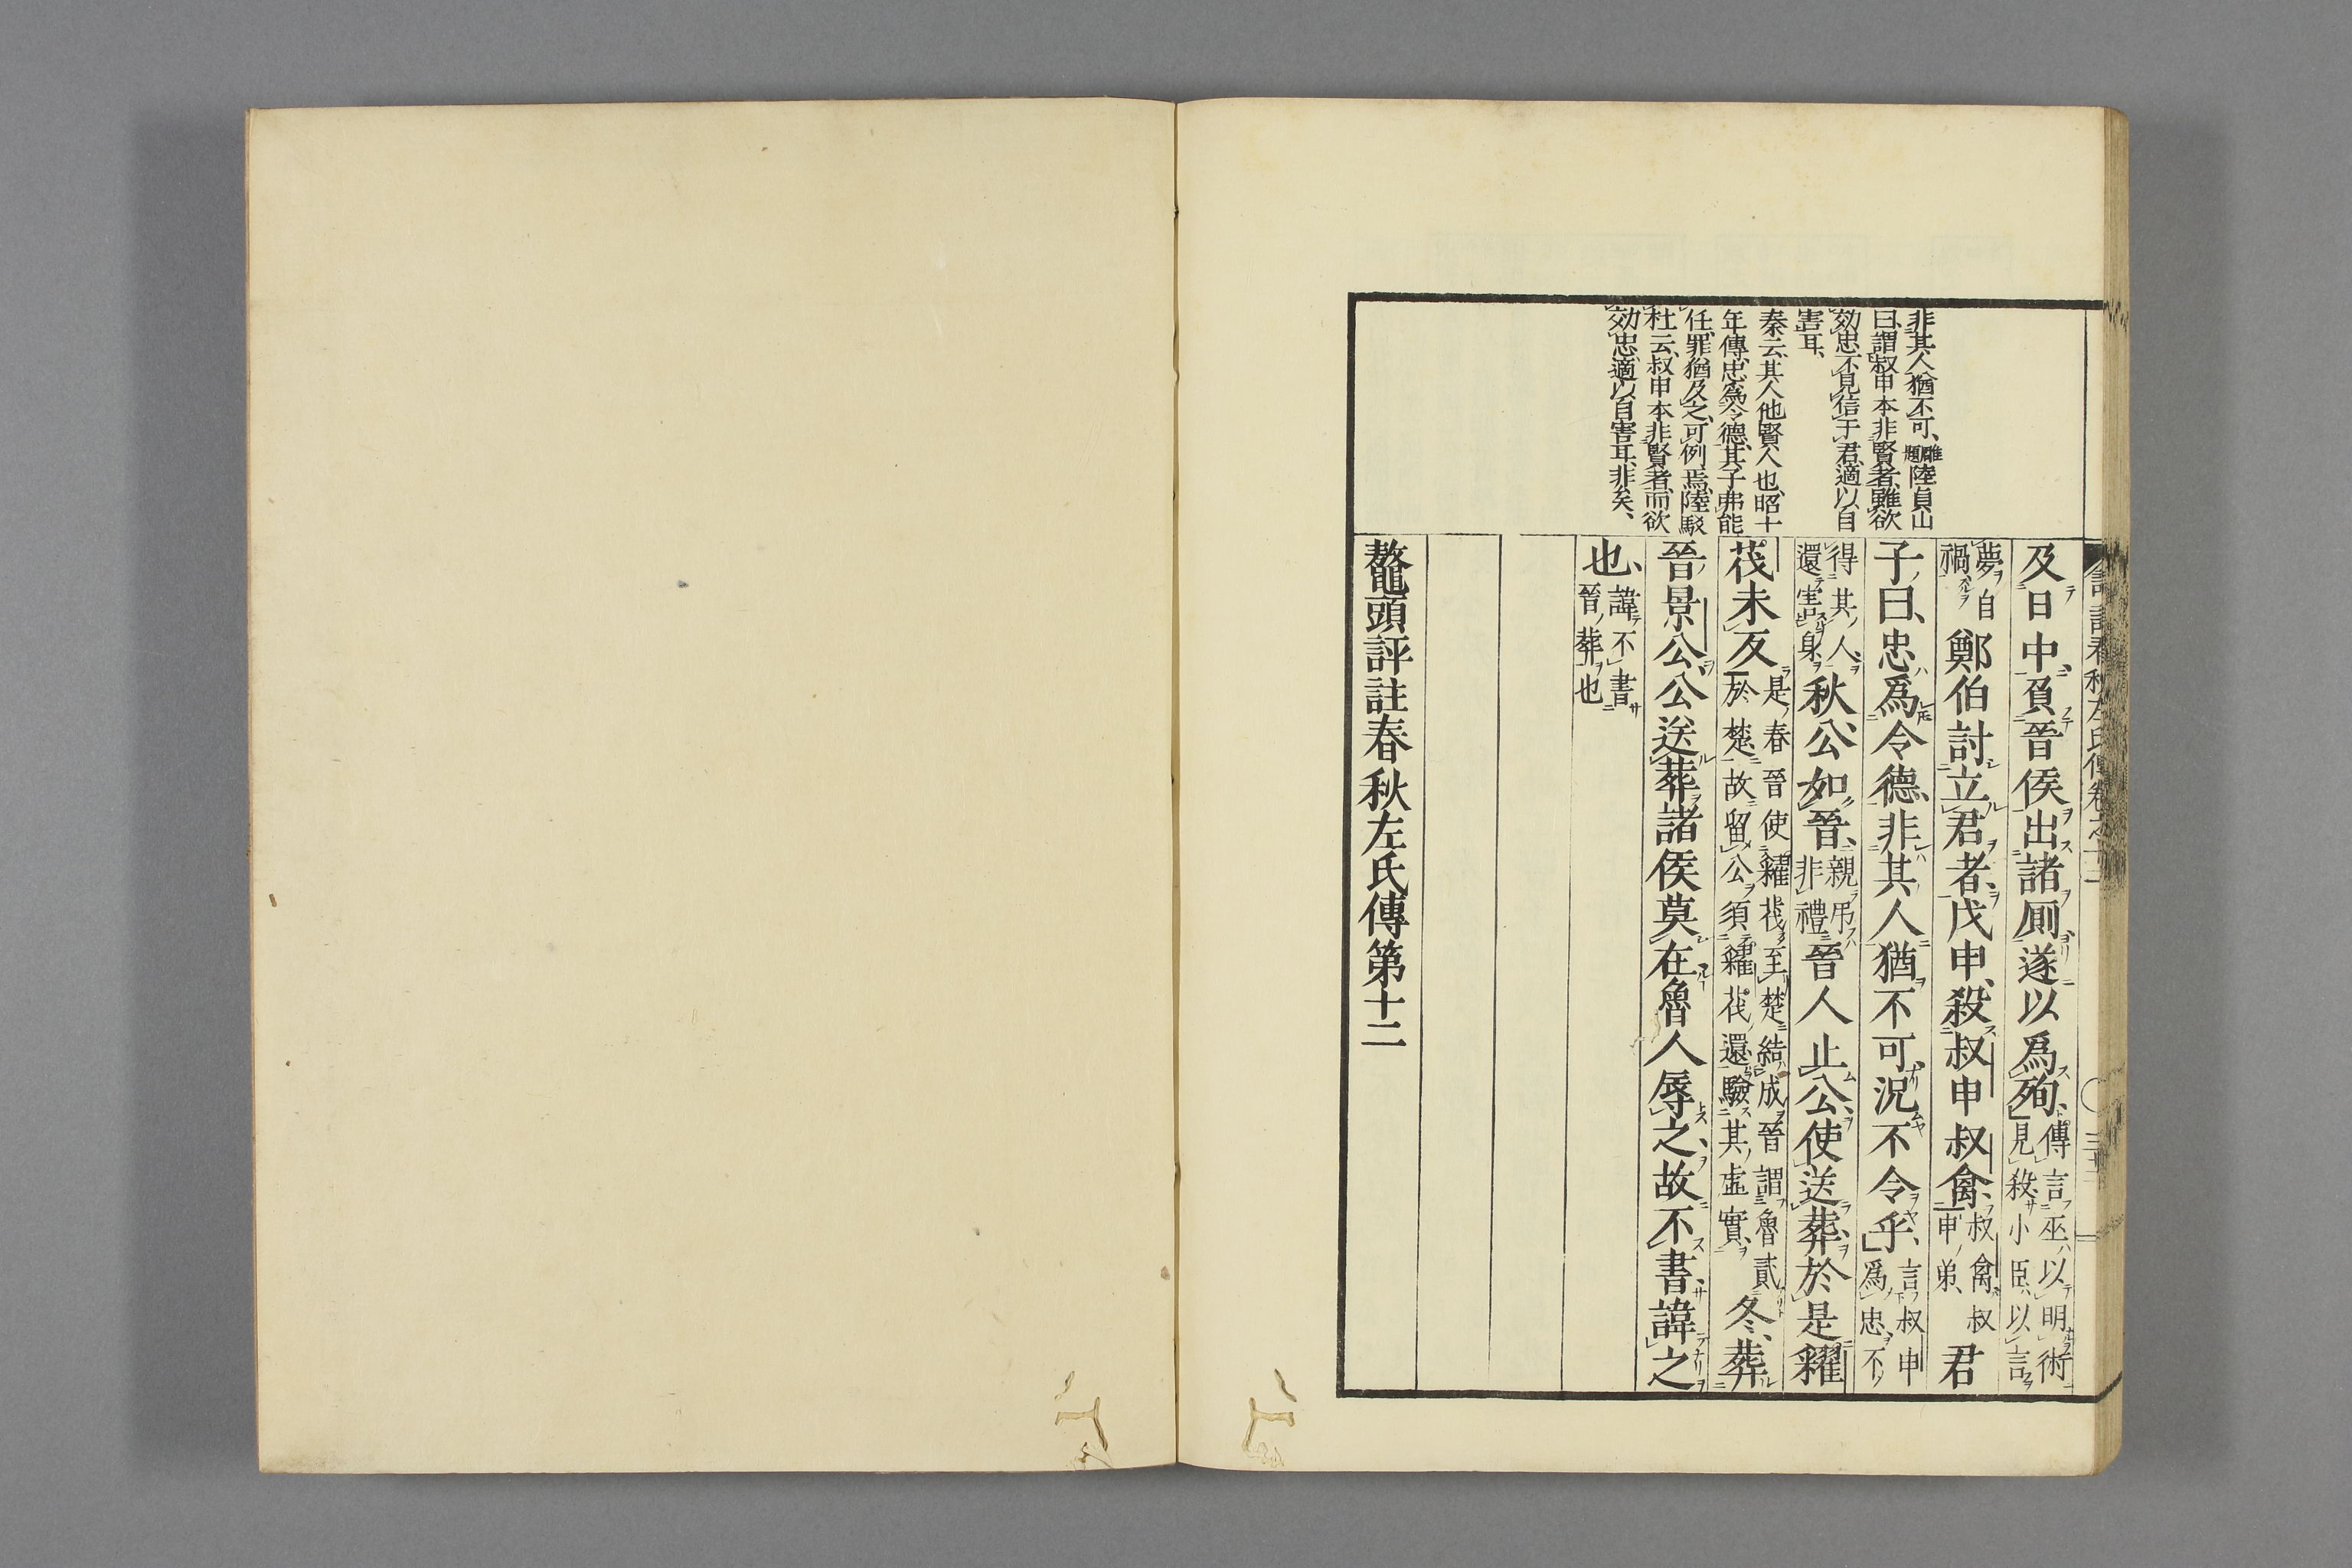 非其人猶不可、雕題陸貞山
曰、謂叔申本非賢者、雖欲
効忠、不見信于君、適以自
害耳、
秦云、其人他賢人也、昭十
年傳、忠爲令德、其子弗能
任、罪猶及之、可例焉、陸駁
杜云、叔申本非賢者、而欲
効忠、適以自害耳、非矣、
及日中、負晉侯出諸厠、遂以爲殉、傳言巫以明術見殺、小臣以言
夢自禍、鄭伯討立君者、戊申、殺叔申叔禽、叔禽叔申弟、君
子曰、忠爲令德、非其人猶不可、況不令乎、言叔申爲忠、不
得其人、還害身、秋、公如晉、親弔非禮、晉人止公、使送葬、於是糴
茷未反、是春晉使糴茷至楚結成、晉謂魯貳於楚、故留公、須糴茷還驗其虛實、冬、葬
晉景公、公送葬、諸侯莫在、魯人辱之、故不書、諱之
也、諱不書晉葬也
鼇頭評註春秋左氏傳第十二